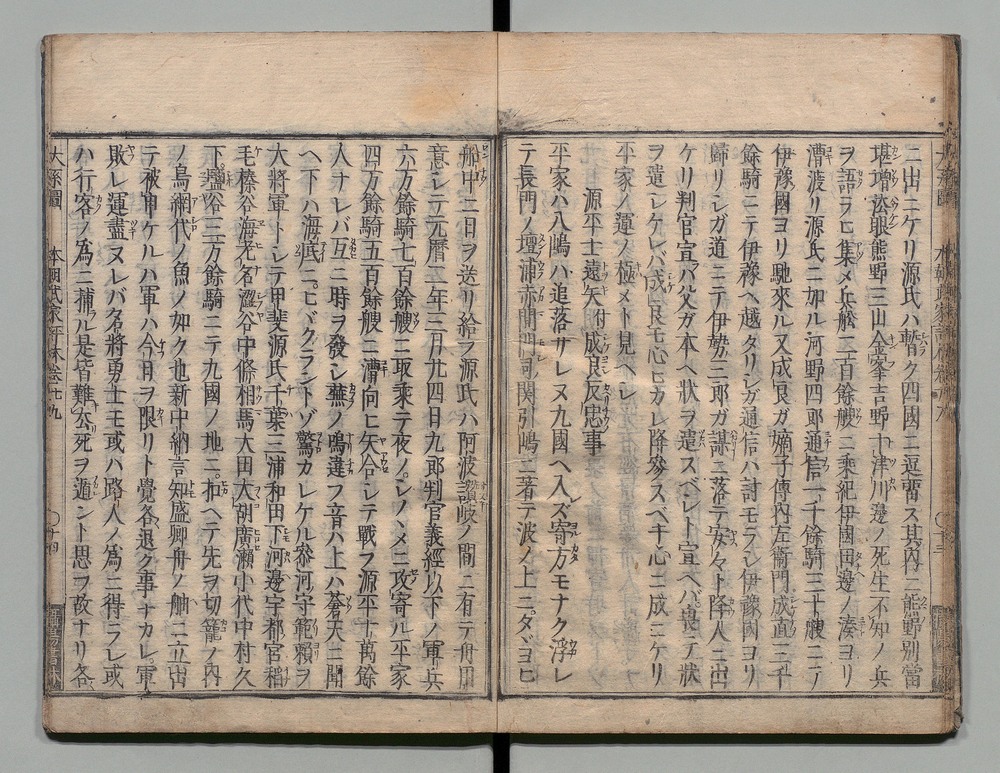 ニ出ニケリ源氏ハ暫ク四國ニ逗畱ス其内ニ熊野別當
堪増淡聀熊野三山金峯吉野十津川邊ノ死生不知ノ兵
ヲ語ラヒ集メ兵舩二百餘艘ニ乘紀伊國田邊ノ湊ヨリ
漕渡リ源氏ニ加ル河野四郎通信一千餘騎三十艘ニテ
伊豫國ヨリ馳來ル又成良ガ嫡子傳内左衞門成直三千
餘騎ニテ伊豫ヘ越タリシガ通信ハ討モラシ伊豫國ヨリ
歸リシガ道ニテ伊勢三郎ガ謀ニ落テ安々ト降人ニ出
ケリ判官宣ハ父ガ本ヘ狀ヲ遣スベシト宣ヘバ畏テ狀
ヲ遣シケレバ成良モ心ヒカレ降參スベキ心ニ成ニケリ
平家ノ運ノ極メト見ヘシ
源平士遠矢付成良反忠事
平家ハ八嶋ハ追落サレヌ九國ヘ入ズ寄方モナク浮レ
テ長門ノ壇浦赤間門司ノ関引嶋ニ著テ波ノ上ニタヾヨヒ
船中ニ日ヲ送リ給フ源氏ハ阿波讃岐ノ間ニ有テ舟用
意シテ元暦二年三月廿四日九郎判官義經以下ノ軍兵
六万餘騎七百餘艘ニ取乘テ夜ノシノヽメニ攻寄ル平家
四万餘騎五百餘艘ニ漕向ヒ矢合シテ戰フ源平十萬餘
人ナレバ互ニ時ヲ發シ蕪ノ鳴違フ音ハ上ハ蒼天ニ聞
ヘ下ハ海底ニヒヾクラントゾ驚カレケル參河守範賴ヲ
大將軍トシテ甲斐源氏千葉三浦和田下河邊宇都宮稻
毛榛谷海老名澀谷中條相馬大田大胡廣瀬小代中村久
下塩谷三万餘騎ニテ九國ノ地ニ和ヘテ先ヲ切籠ノ内
ノ鳥網代ノ魚ノ如ク也新中納言知盛卿舟ノ舳ニ立出
テ被申ケルハ軍ハ今日ヲ限リト覺各退ク事ナカレ軍
敗レ運盡ヌレバ名將勇士モ或ハ路人ノ爲ニ得ラレ或
ハ行客ノ爲ニ捕ル是皆難公死ヲ遁ント思フ故ナリ各
大系圖 本朝武家評林巻七九 〇十四